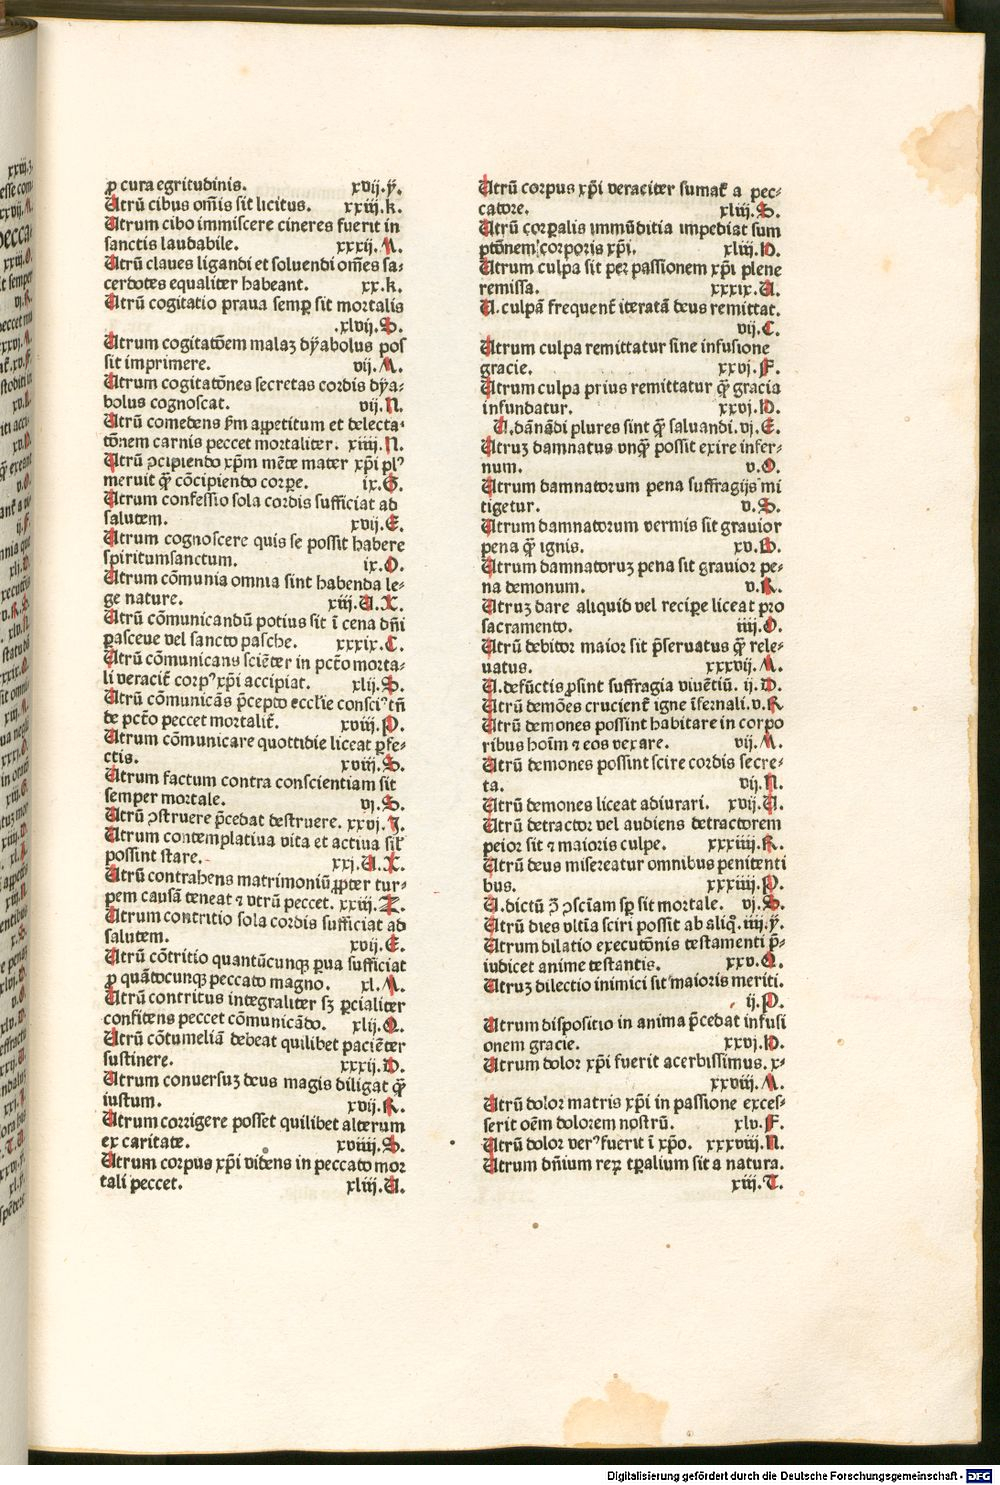 ꝓ cura egritudinis. xvij.ÿ.
Utrū cibus om̄is sit licitus. xxiij.k.
Utrum cibo immiscere cineres fuerit in
sanctis laudabile. xxxij.A.
Utrū claues ligandi et soluendi om̄es sa⸗
cerdotes equaliter habeant. xx.k.
Utrū cogitatio praua semꝑ sit mortalis
.xlvij.S.
Utrum cogitatōem malaꝫ dÿabolus pos
sit imprimere. vij.M.
Utrum cogitatōnes secretas cordis dÿa⸗
bolus cognoscat. vij.N.
Utrū comedens ẏm appetitum et delecta⸗
tōnem carnis peccet mortaliter. xiiij.N.
Utrū ↄcipiendo xp̄m mēte mater xp̄i plꝰ
meruit q̄ꝫ cōcipiendo corꝑe. ix.G.
Utrum confessio sola cordis sufficiat ad
salutem. xvij.E.
Utrum cognoscere quis se possit habere
spiritumsanctum. ix.O.
Utrum cōmunia omnia sint habenda le⸗
ge nature. xiij.U.X.
Utrū cōmunicandū potius sit ī cena dn̄i
ꝑasceue vel sancto pasche. xxxix.C.
Utrū cōmunicans sciēter in pctō morta⸗
li veracit̄ corpꝰ xp̄i accipiat. xlij.S.
Utrū cōmunicās p̄cepto eccl̄ie consciꝰ tn̄
de pctō peccet mortalit̄. xviij.P.
Utrum cōmunicare quottidie liceat ꝑfe⸗
ctis. xviij.S.
Utrum factum contra conscientiam sit
semper mortale. vj.S.
Utrū ↄstruere p̄cedat destruere. xxvj.J.
Utrum contemplatiua vita et actiua sil̄
possint stare. xxj.U.X.
Utrū contrahens matrimoniū ꝓpter tur⸗
pem causā teneat ⁊ vtrū peccet. xxiij.Z.
Utrum contritio sola cordis sufficiat ad
salutem. xvij.E.
Utrū cōtritio quantūcunqꝫ ꝑua sufficiat
ꝓ quātocunqꝫ peccato magno. xl.M.
Utrū contritus integraliter sꝫ ꝑcialiter
confitens peccet cōmunicādo. xlij.Q.
Utrū cōtumeliā debeat quilibet paciēter
sustinere. xxxij.D.
Utrum conuersuꝫ deus magis diligat q̄ꝫ
iustum. xvij.R.
Utrum corrigere posset quilibet alterum
ex caritate. xviiij.S.
Utrum corpus xp̄i videns in peccato mor
tali peccet. xliij.U.
Utrū corpus xp̄i veraciter sumat̄ a pec⸗
catore. xliij.S.
Utrū corꝑalis immūditia impediat sum
ptōnem corporis xp̄i. xliij.D.
Utrum culpa sit per passionem xp̄i plene
remissa. xxxix.U.
U. culpā frequent̄ iteratā deus remittat.
vij.C.
Utrum culpa remittatur sine infusione
gracie. xxvj.F.
Utrum culpa prius remittatur q̄ꝫ gracia
infundatur. xxvj.D.
U. dān̄adi plures sint q̄ꝫ saluandi. vj.E.
Utruꝫ damnatus vnq̄ꝫ possit exire infer⸗
num. v.O.
Utrum damnatorum pena suffragijs mi
tigetur. v.S.
Utrum damnatorum vermis sit grauior
pena q̄ꝫ ignis. xv.B.
Utrum damnatoruꝫ pena sit grauior pe⸗
na demonum. v.R.
Utruꝫ dare aliquid vel reciꝑe liceat pro
sacramento. iiij.O.
Utrū debitor maior sit p̄seruatus q̄ꝫ rele⸗
uatus. xxxvij.M.
U. defūctis ꝓsint suffragia viuētiū. ij.D.
Utrū demōes crucient̄ igne īfernali. v.R
Utrū demones possint habitare in corpo
ribus hoīm ⁊ eos vexare. vij.M.
Utrū demones possint scire cordis secre⸗
ta. vij.N.
Utrū demones liceat adiurari. xvij.U.
Utrū detractor vel audiens detractorem
peior sit ⁊ maioris culpe. xxxiiij.R.
Utrū deus misereatur omnibus penitenti
bus. xxxiiij.P.
U. dictū ↄ̄ ↄsciam sꝑ sit mortale. vj.S.
Utrū dies vltīa sciri possit ab aliq̄. iiij.ÿ.
Utrum dilatio executōnis testamenti p̄⸗
iudicet anime testantis. xxv.Q.
Utruꝫ dilectio inimici sit maioris meriti.
ij.P.
Utrum dispositio in anima p̄cedat infusi
onem gracie. xxvj.D.
Utrum dolor xp̄i fuerit acerbissimus. x⸗
xxviij.M.
Utrū dolor matris xp̄i in passione exces⸗
serit oēm dolorem nostrū. xlv.F.
Utrū dolor verꝰ fuerit ī xp̄o. xxxviij.N.
Utrum dn̄ium reꝝ tꝑalium sit a natura.
xiij.T.
Digitalisierung gefördert durch die Deutsche Forschungsgemeinschaft - DFG